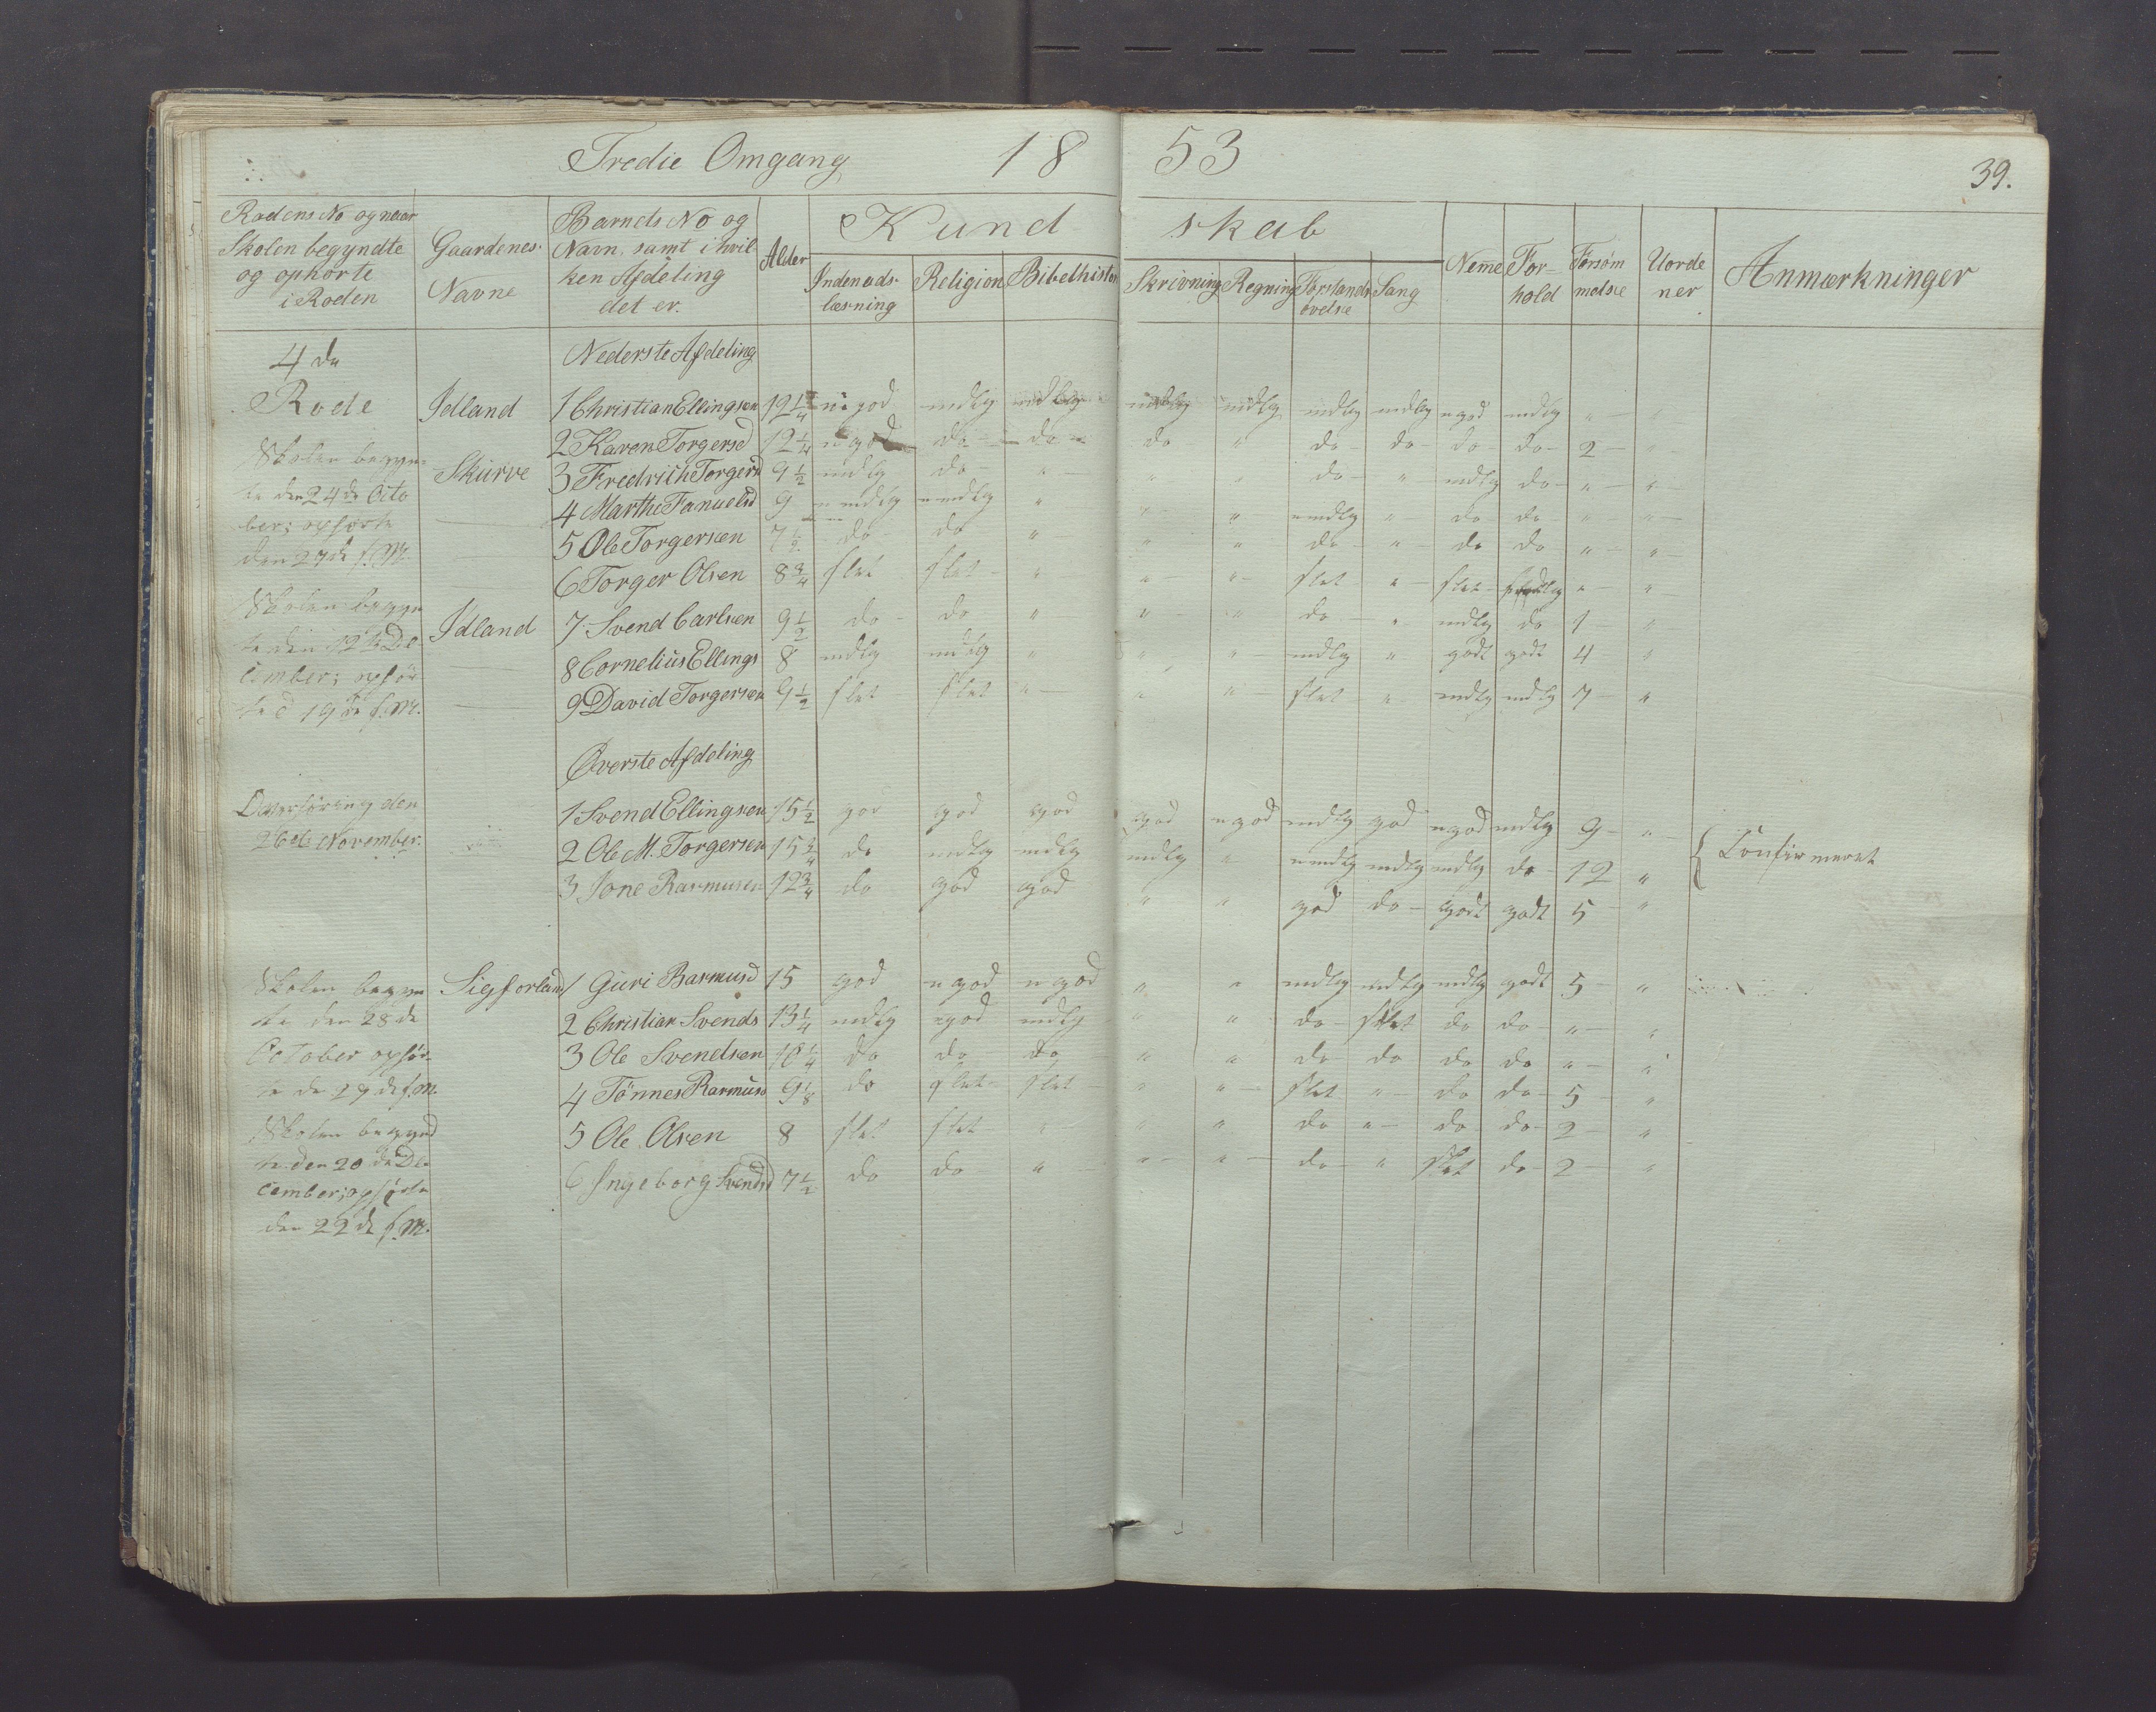 Tredie Omgang 18 53
39.
Rodens No og naar Skolen begyndte og ophörte i Roden
Gaardenes Navne
Barnets No og Navn, samt i hvilken Afdeling det er.
Alder
Kundskab
Indenads-læsning Religion Bibelhistorie Skrivning Regning Forstands övelse Sang
Nem̅e
Forhold
Forsømmelse
Uordener
Anmærkninger
4de Nederste Afdeling
Rode Idland 1 Christian Ellingsen 12 1/4 ugod mdlg mdlg mdlg mdlg mdlg mdlg ugod mdlg " "
2 Karen Torgersd 12 1/4 ugod do do do " do do do do 2 "
Skolen begyn-
Skurve 3 Fredrich Torgers 9 1/2 mdlg do " " " do " mdlg do " "
te den 24de Octo
4 Marthe Fanuelsd 9 umdlg umdlg " " " umdlg " do do " "
ber; ophörte
5 Ole Torgersen 7 1/2 do do " " " do " do do " "
den 27de s. M.
6 Torger Olsen 8 3/4 slet slet " " " slet " slet mdlg " "
Skolen begyn
Idland 7 Svend Carlsen 9 1/2 do do " " " do " mdlg do 1 "
te den 12te De-
8 Cornelius Ellings 8 mdlg mdlg " " " mdlg " godt godt 4 "
cember; ophör
9 David Torgersen 9 1/2 slet slet " " " slet " mdlg mdlg 7 "
te d 19de s. M.
Överste Afdeling
den
1 Svend Ellingsen 15 1/2 god god god god ugod mdlg god ugod mdlg 9 "
26de November.
2 Ole M. Torgersen 15 3/4 do mdlg mdlg mdlg " umdlg mdlg mdlg do 12 "
{ Confirmeret
3 Jone Rasmusen 12 3/4 do god god " " god do godt godt 5 "
Skolen begyn Sigforland 1 Guri Rasmusd 15 god ugod ugod " " mdlg mdlg mdlg godt 5 "
te den 28de
2 Christian Svends 13 1/4 mdlg ugod mdlg " " do slet do do " "
October ophör-
3 Ole Svendsen 10 1/4 do do do " " do do do do " "
te de 29de s. M.
4 Tönnes Rasmus 9 1/8 do slet slet " " slet " do do 5 "
Skolen begynd
5 Ole Olsen 8 slet slet " " " do " do do 2 "
te den 20de De-
6 Ingeborg Svendsd 7 1/2 do do " " " do " slet do 2 "
cember; ophörte
den 22de s. M.